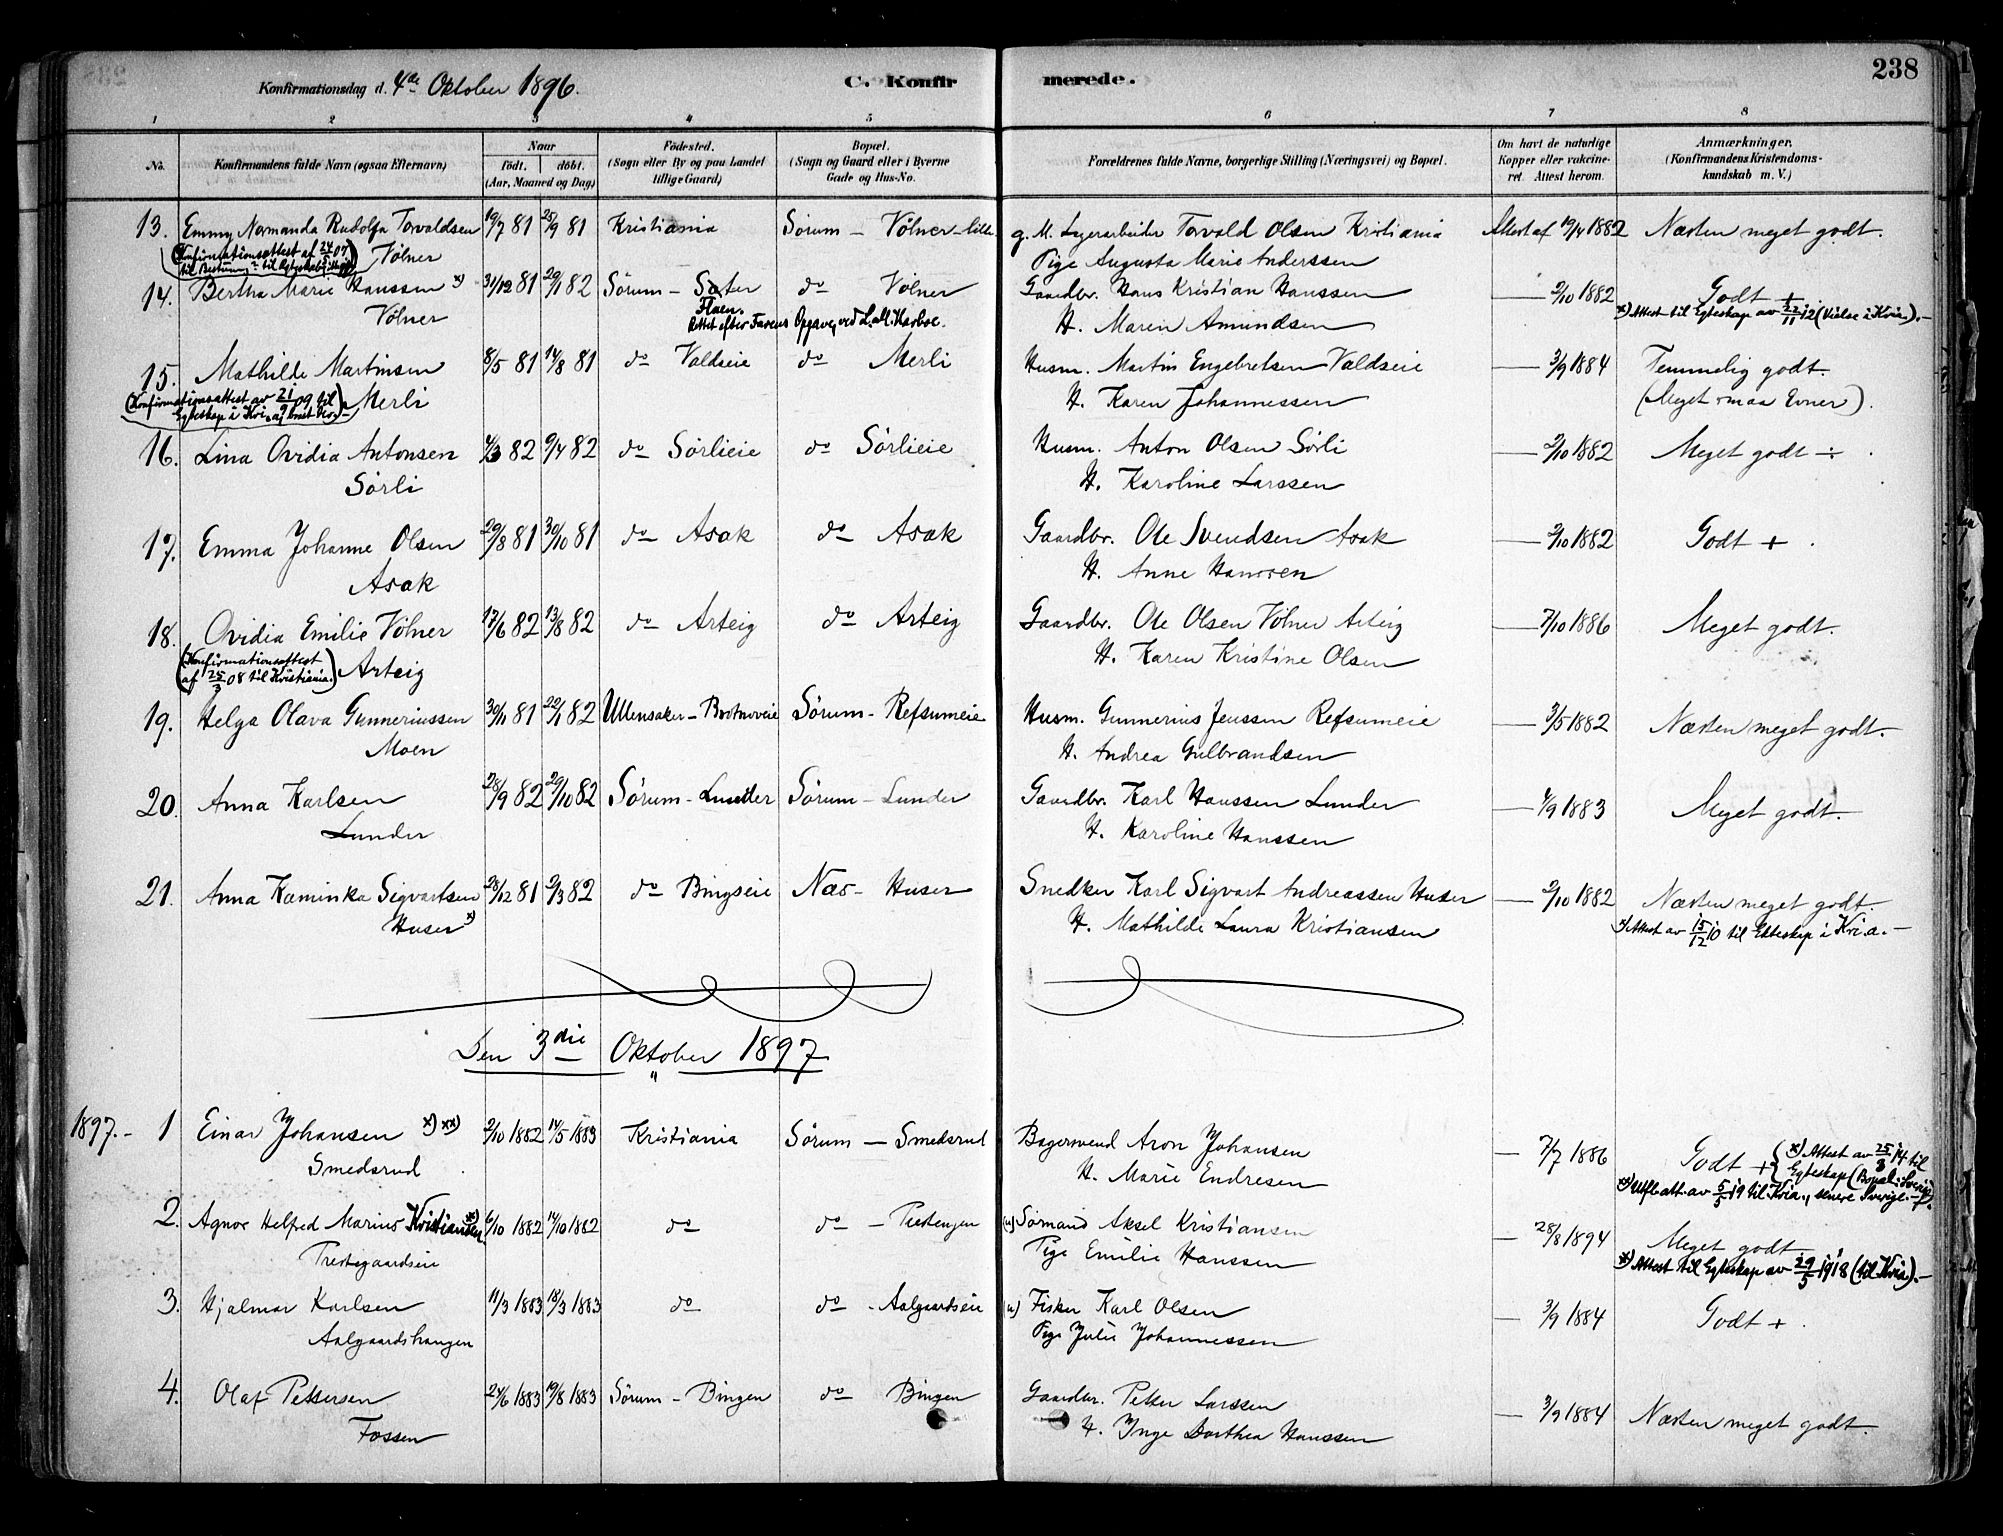 238
Konfirmationsdag d. 4de Oktober 1896.
C. Konfirmerede.
1 2 3 4 5 6 7 8
No. Konfirmandens fulde Navn (ogsaa Efternavn)
Naar
født. døbt.
(Aar, Maaned og Dag)
Fødested.
(Sogn eller By og paa Landet
tillige Gaard)
Bopæl.
(Sogn og Gaard eller i Byerne
Gade og Hus-No.
Forældrenes fulde Navne, borgerlige Stilling (Næringsvei) og Bopæl.
Om havt de naturlige
Kopper eller vakcine-
ret. Attest herom.
Anmærkninger.
(Konfirmandens Kristendoms-
kundskab m. V.)
13. Emmy Normanda Rudolfa Torvaldsen 19/7 81 25/9 81 Kristiania Sørum - Vølner-lille g. M. Lagerarbeider Torvald Olsen Kristiania Attest af 19/4 1882 Næsten meget godt.
(Konfirmationsattest af 24/5 07. Vølner Pige Augusta Marie Anderssen
14. Bertha Marie Hanssen x) 31/12 81 29/1 82 Sørum - Sæter do Vølner Gaardbr. Hans Kristian Hanssen — 2/10 1882 Godt +
Flaen.
Vølner Rettet efter Farens Opgave, ved L. M. Karboe. H. Maren Amundsen x) Attest til Egteskap av 22/11 12 (Vielse i Kria.).-
15. Mathilde Martinsen 8/5 81 14/8 81 do Valdseie do Merli Husm. Martin Engebretsen Valdseie — 3/9 1884 Temmelig godt.
(Konfirmationsattest av 21/9 09 til Merli H. Karen Johannessen (Meget smaa Evner).
Egteskap i Kria.
16. Lina Ovidia Antonsen 4/3 82 9/4 82 do Sørlieie do Sørlieie Husm. Anton Olsen Sørli — 2/10 1882 Meget godt ÷.
Sørli H. Karoline Larssen
17. Emma Johanne Olsen 29/8 81 30/10 81 do Asak do Asak Gaardbr. Ole Svendsen Asak — 2/10 1882 Godt +.
Asak H. Anne Hanssen
18. Ovidia Emilie Vølner 17/6 82 13/8 82 do Arteig do Arteig Gaardbr. Ole Olsen Vølner Arteig — 7/10 1886 Meget godt.
(Konfirmationsattest
af 25/3 08 til Kristiania.) Arteig H. Karen Kristine Olsen
19. Helga Olava Gunneriussen 30/11 81 22/1 82 Ullensaker - Sørum - Refsumeie Husm. Gunnerius Jenssen Refsumeie — 3/5 1882 Næsten meget godt.
Moen H. Andrea Gulbrandsen
20. Anna Karlsen 28/9 82 29/10 82 Sørum - Lunder Sørum - Lunder Gaardbr. Karl Hanssen Lunder — 4/9 1883 Meget godt.
Lunder H. Karoline Hanssen
21. Anna Kaminka Sigvartsen 28/12 81 2/3 82 do Bingseie Næs - Huser Snedker Karl Sigvart Andreassen Huser — 2/10 1882 Næsten meget godt.
Huser x) H. Mathilde Laura Kristiansen x) Attest av 15/12 10 til Ekteskap i Kri.a.-
Den 3die Oktober 1897
1897.- 1 Einar Johansen x) xx) 2/10 1882 14/5 1883 Kristiania Sørum - Smedsrud Bagersvend Aron Johansen — 7/7 1886 Godt + { x) Attest av 25/3 14 til
Smedsrud H. Marie Endresen Egteskap (Bopæl: Sverige)
xx) Utfl.att. av 5/5 19 til Kria., senere Sverige.-
2. Agnor Helfred Marius Kristiansen x) 6/10 1882 14/10 1882 do do - Prestengen (u) Sømand Aksel Kristiansen — 28/8 1894 Meget godt.
Prestegaardseie Pige Emilie Hanssen x) Attest til Egteskap av 29/5 1918 (til Kria).-
3. Hjalmar Karlsen 11/3 1883 18/3 1883 do do - Aalgaardseie (u) Fisker Karl Olsen — 3/9 1884 Godt +.
Aalgaardshaugen Pige Julie Johannessen
4. Olaf Pettersen 24/6 1883 19/8 1883 Sørum - Bingen do Bingen Gaardbr. Petter Larssen — 3/9 1884 Næsten meget godt.
Fossen H. Inge Dorthea Hanssen